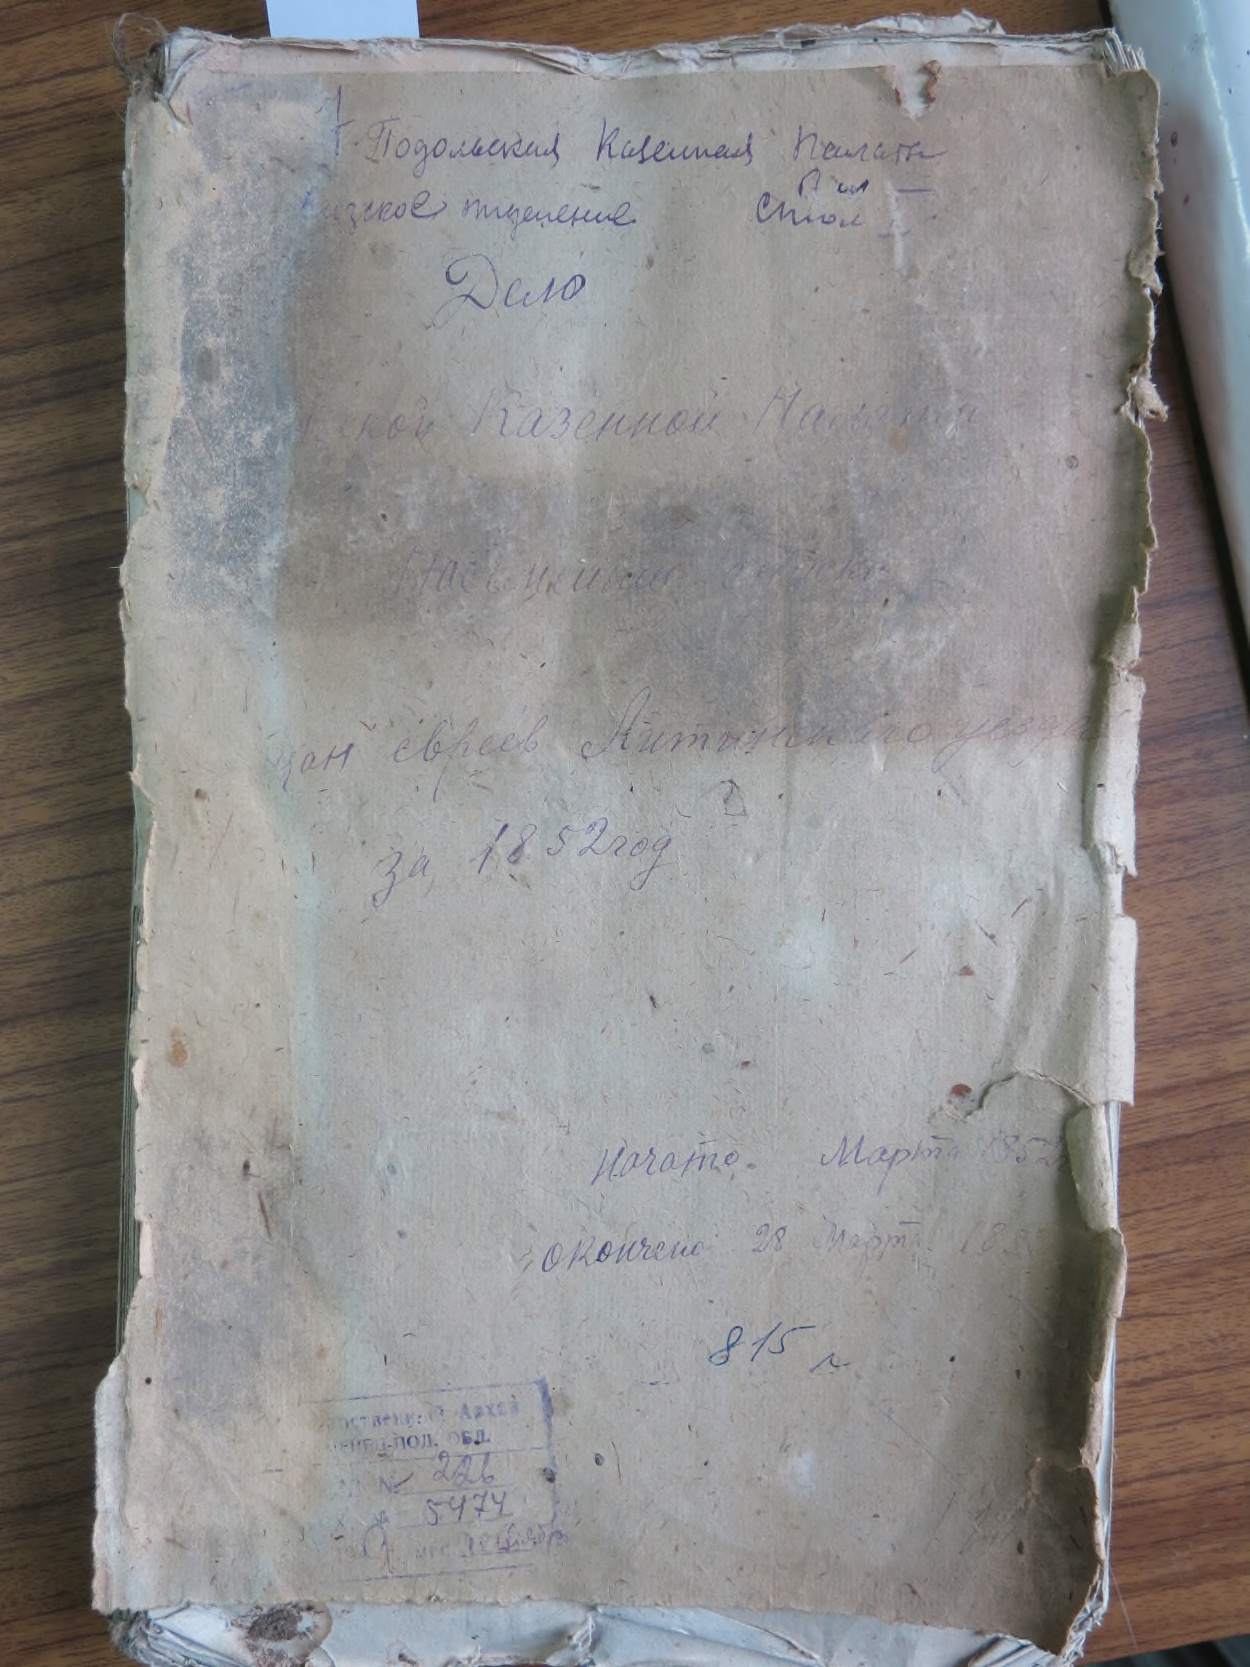 Подольская Казенная Палата
отделение Стол
Дело
ской Казенной Палаты
щан евреев Литинского уезда
за 1852 год
Начато Марта 1852
Окончено 28 Марта 18
815 л
рственный Архив
ПОД. ОБЛ.
№ 226
№ 5474